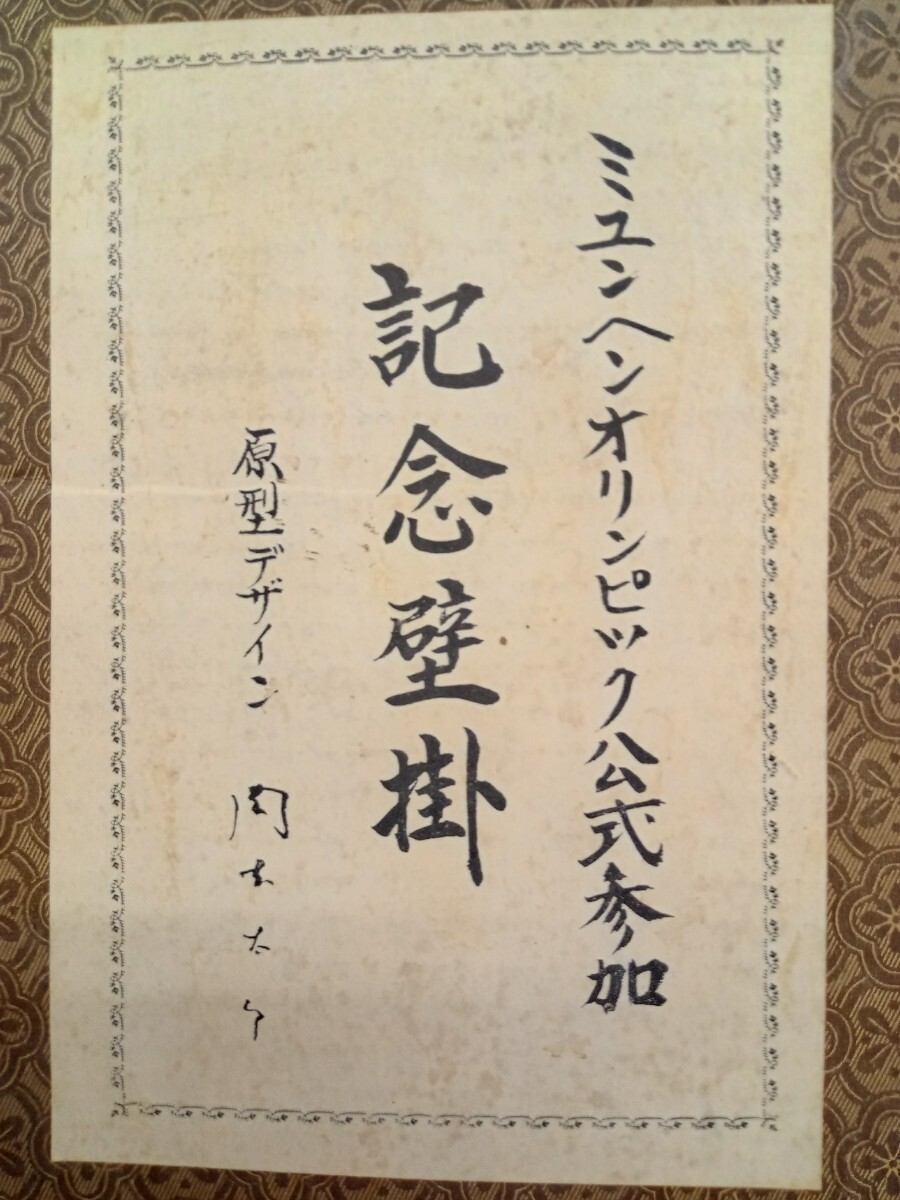 ミユンヘンオリンピック公式参加
記念壁掛
原型デザイン 岡本太郎